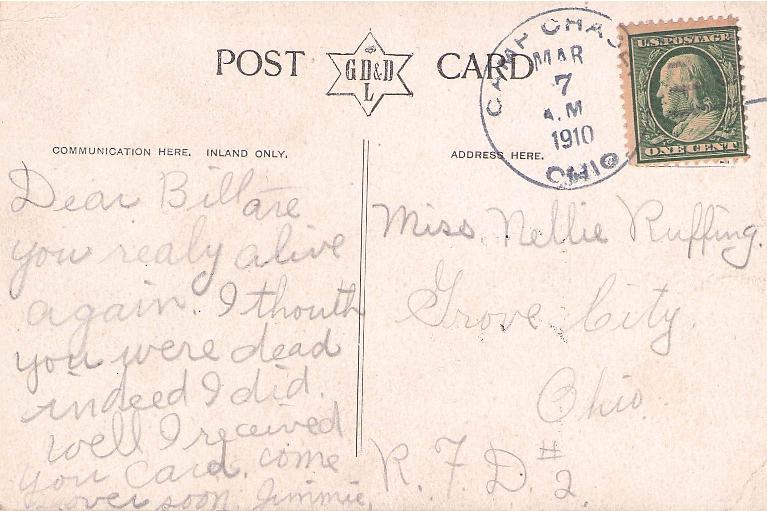 POST CARD
G D & D
L
CAMP CHASE
MAR
7
A.M
1910
OHIO
U.S. POSTAGE
ONE CENT
COMMUNICATION HERE. INLAND ONLY.
ADDRESS HERE.
Dear Bill are
you realy alive
again. I thouth
you were dead
indeed I did.
Well I received
you card. come
over soon. Jimmie,
Miss. Nellie Ruffing.
Grove City.
Ohio.
R. F. D. #2.